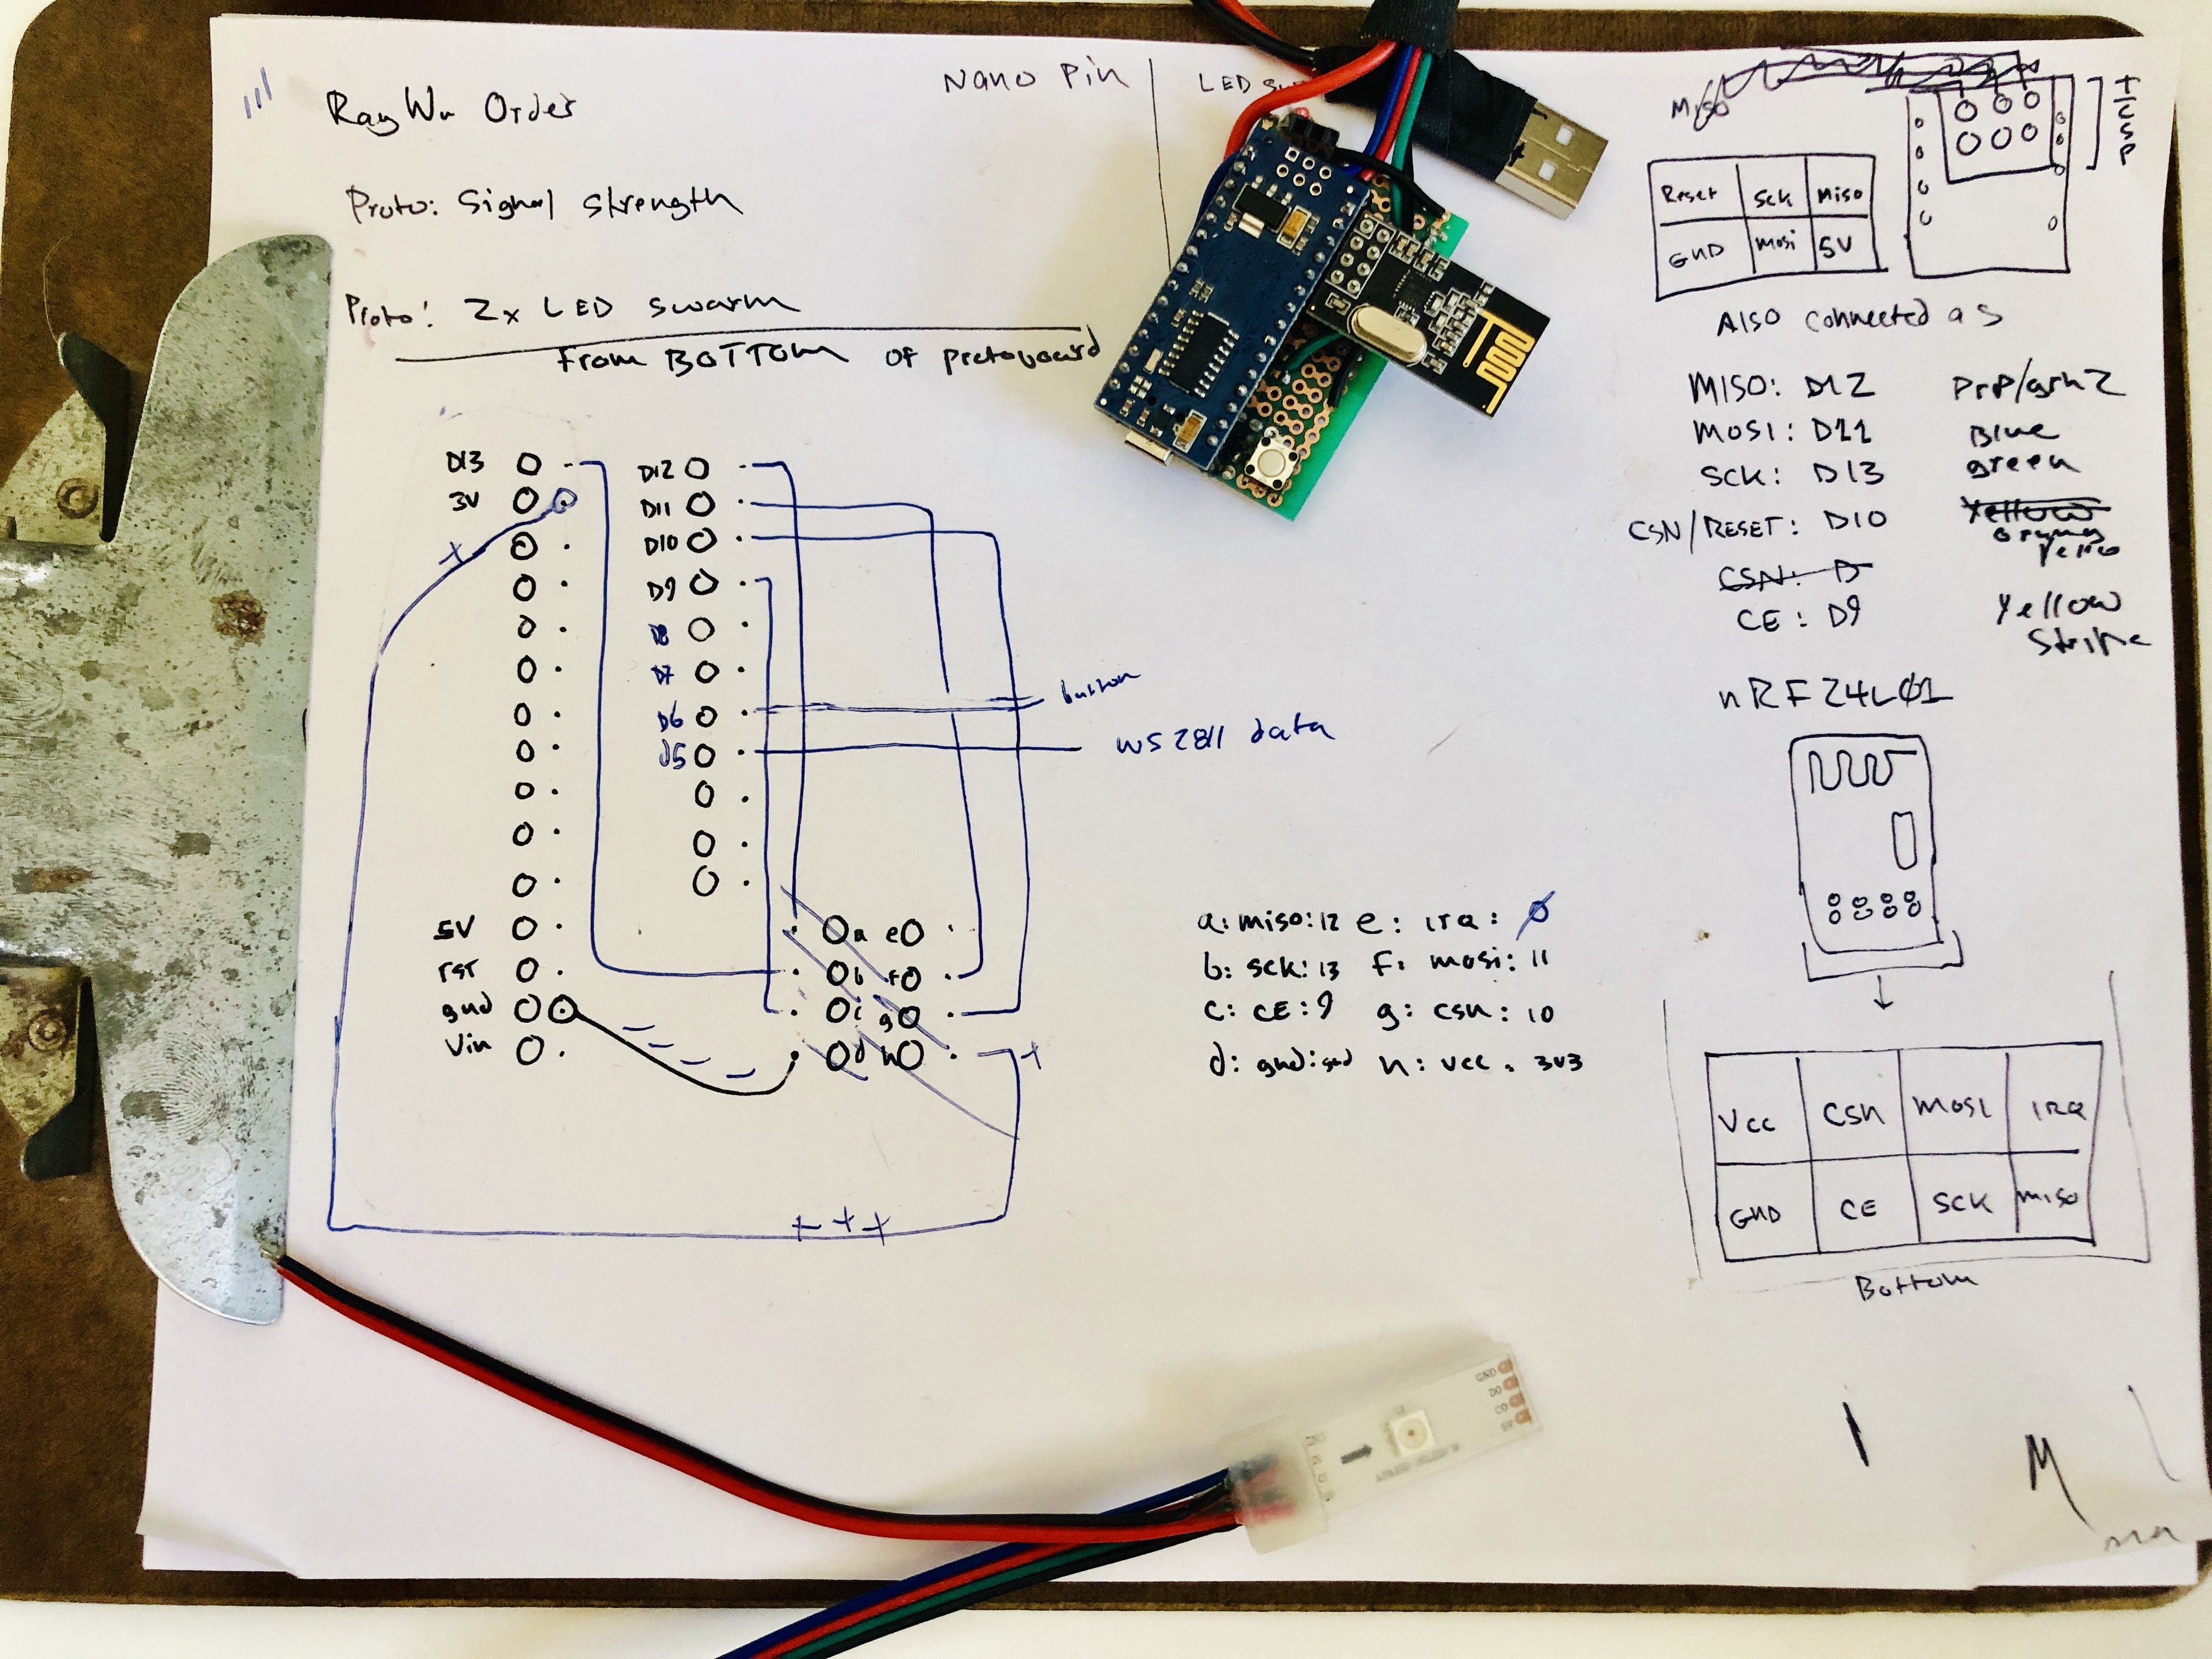 Ray Wu Order
Proto: Signal Strength
Proto: 2x LED swarm
From BOTTOM of protoboard
Nano Pin
LED
D13
3V
5V
rst
gnd
Vin
D12
D11
D10
D9
D8
D7
D6
D5
button
WS2811 data
a e
b f
c g
d h
a: miso:12 e: irq: Ø
b: sck:13 f: mosi: 11
c: CE:9 g: csn: 10
d: gnd:gnd h: vcc: 3v3
MISO
ICSP
Reset Sck Miso
GND Mosi 5V
Also connected as
MISO: D12 Prp/grn 2
MOSI: D11 Blue
SCK: D13 green
CSN/RESET: D10 Yellow
CSN: D
CE: D9 Yellow
Stripe
nRF24L01
Vcc CSN MOSI IRQ
GND CE SCK MISO
Bottom
GND
DO
CO
5V
M